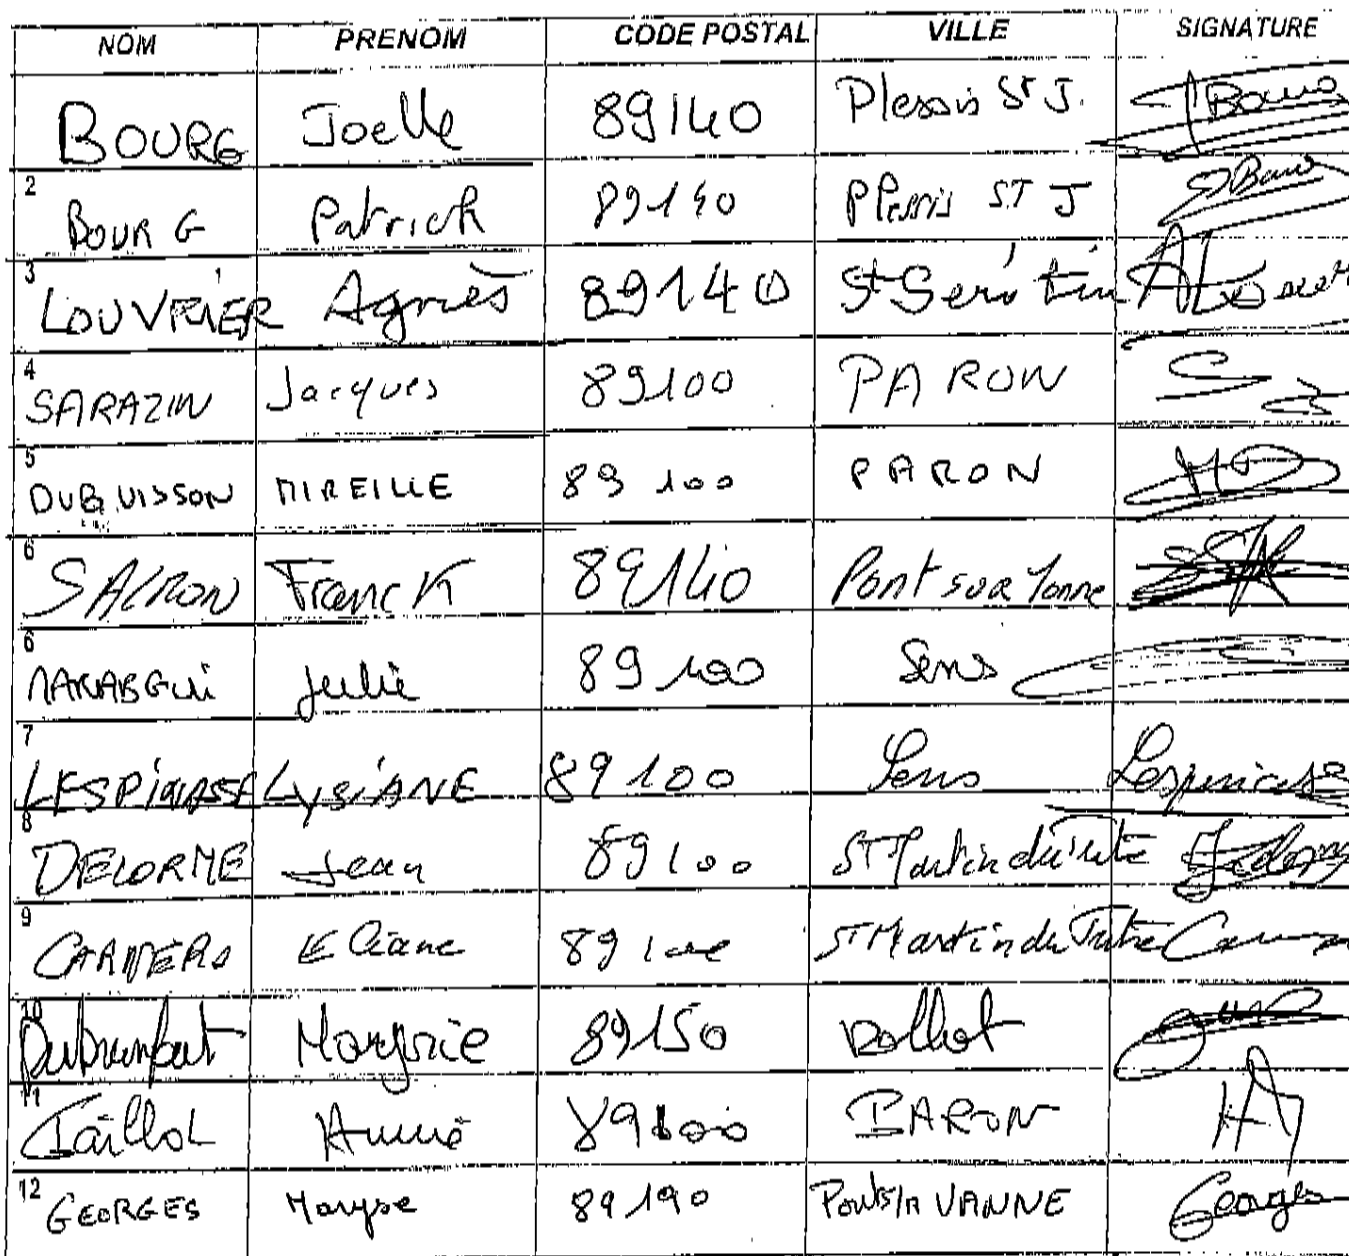 NOM PRENOM CODE POSTAL VILLE SIGNATURE
BOURG Joelle 89140 Plessis St J.
2 BOURG Patrick 89140 Plessis ST J
3 LOUVRIER Agnès 89140 St Sérotin
4 SARAZIN Jacques 89100 PARON
5 DUBUISSON MIREILLE 89 100 PARON
6 Franck 89140 Pont sur Yonne
6 Julie 89 100 Sens
7 LESPINASSE LYSIANE 89100 Sens Lespinasse
8 DELORME Jean 89100 ST Martin du Tertre
9 Eliane 89100 ST Martin du Tertre
10 89150 Dollot
11 Taillot Annie 89100 PARON
12 GEORGES Maryse 89190 Pont s/ VANNE Georges